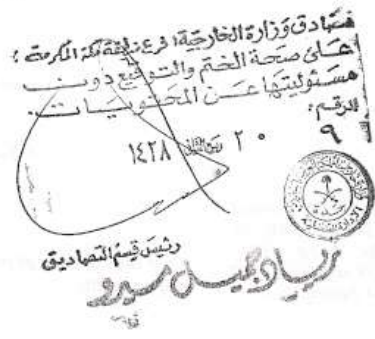 تصادق وزارة الخارجية / فرع منطقة مكة المكرمة :
على صحة الختم والتوقيع دون
مسئوليتها عن المحتويات.
الرقم :
٩
٢٠ ربيع الثاني ١٤٢٨
رئيس قسم التصاديق